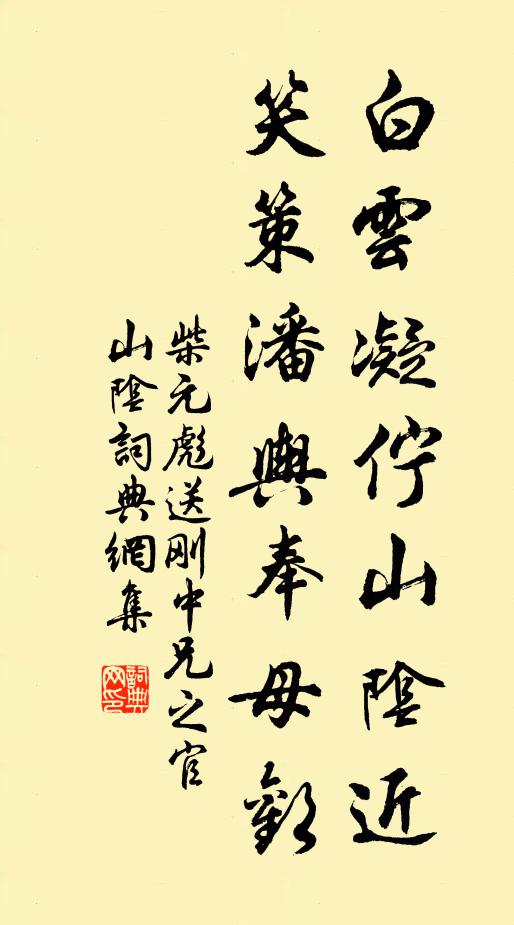 白雲凝佇山陰近
笑策潘輿奉母歡
柴元彪送刚中兄之官
山陰詞典網集
詞典网印